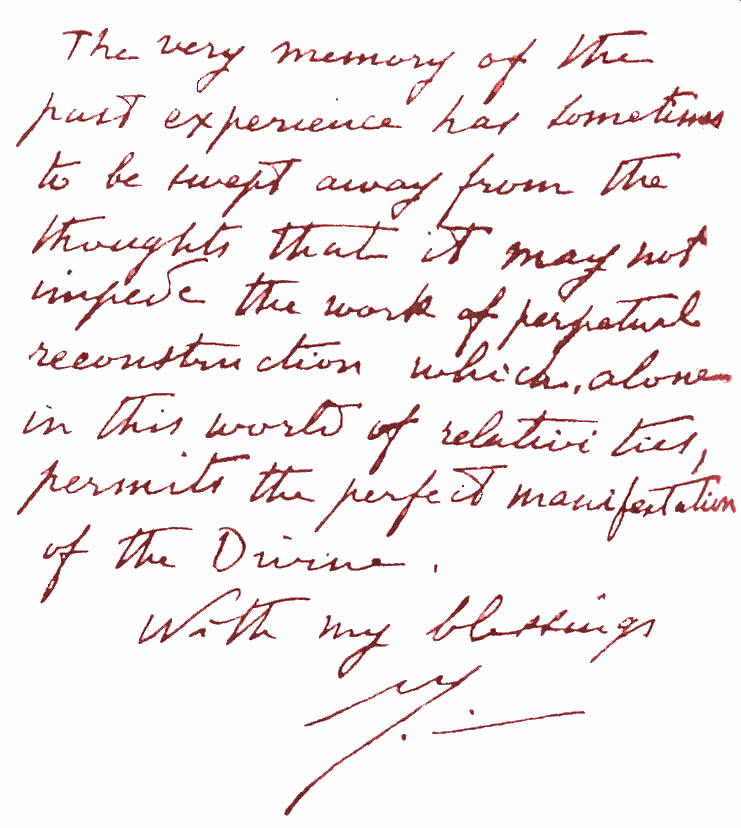 The very memory of the
past experience has sometimes
to be swept away from the
thoughts that it may not
impede the work of perpetual
reconstruction which, alone
in this world of relativities,
permits the perfect manifestation
of the Divine.
With my blessings